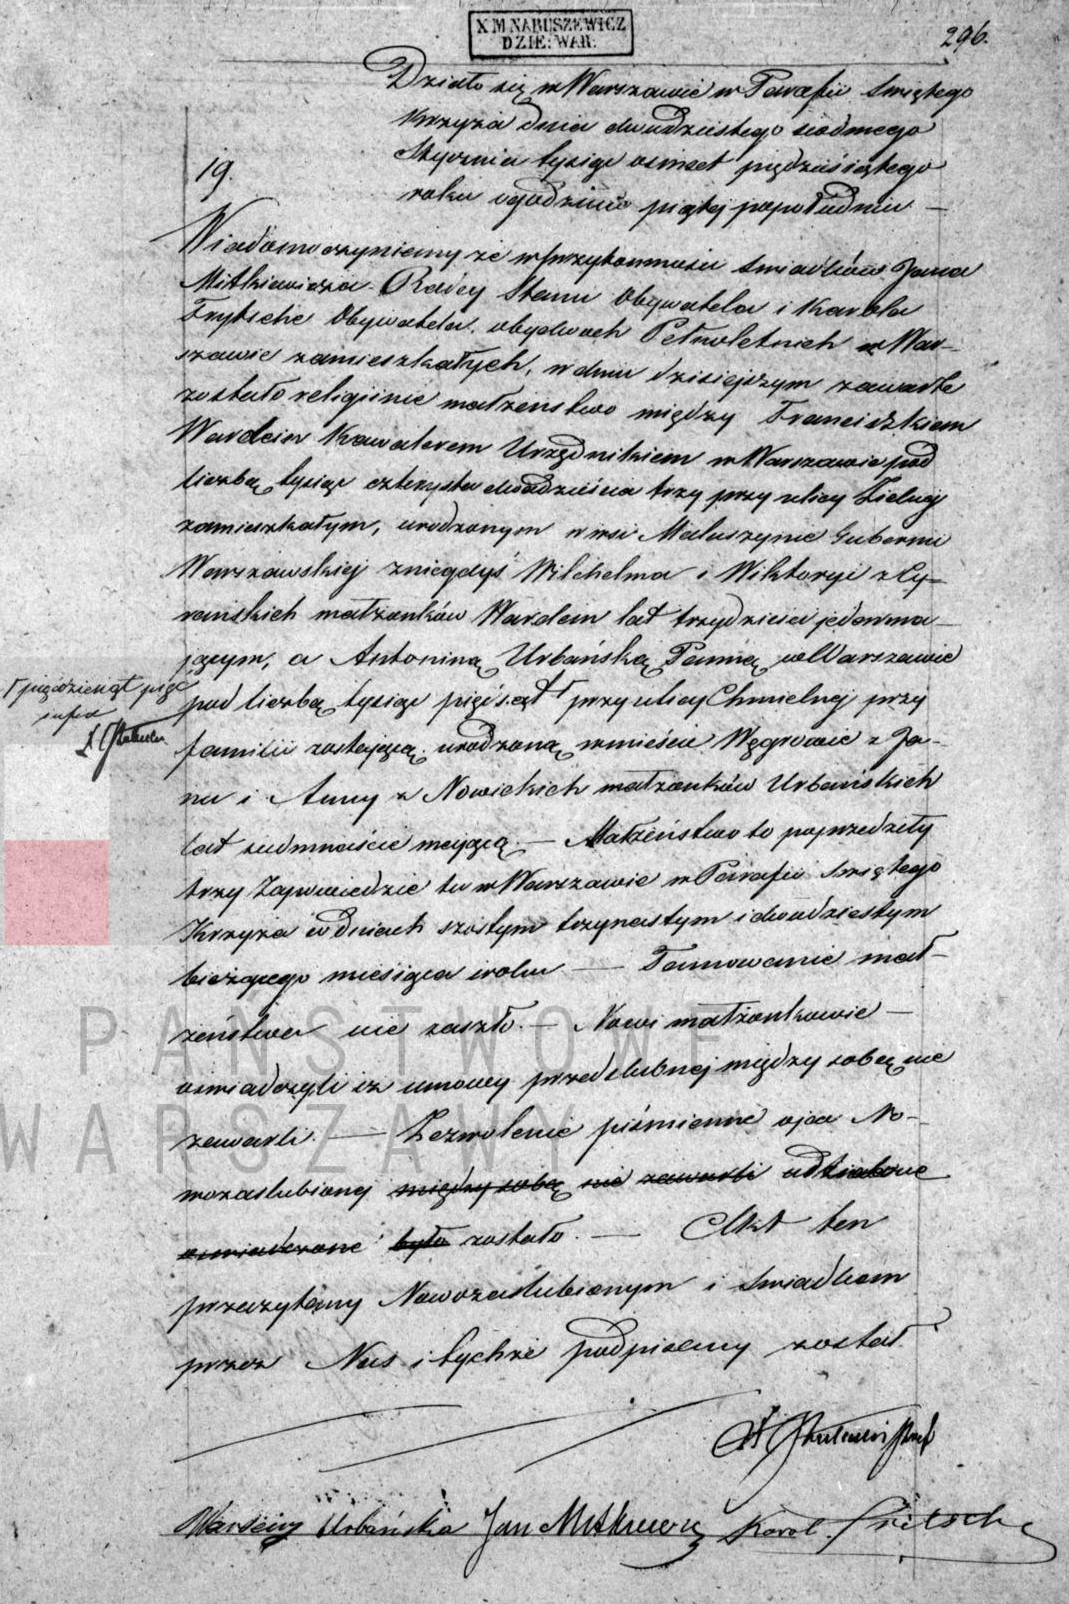 X M NABUSZEWICZ
DZIE: WAR:
296.
Działo się w Warszawie w Parafii Świętego
Krzyża dnia dwudziestego siódmego
Stycznia tysiąc ośmset pięćdziesiątego
roku o godzinie piątej popołudniu —
19.
Wiadomo czyniemy że w przytomności świadków Jana
Mitkiewicza Radcy Stanu Obywatela i Karola
Frytsche Obywatela, obydwóch Pełnoletnich w War-
szawie zamieszkałych, w dniu dzisiejszym zawarte
zostało religijnie małżeństwo między Franciszkiem
Wardein Kawalerem Urzędnikiem w Warszawie pod
liczbą tysiąc czterysta dwadzieścia trzy przy ulicy Zielnej
zamieszkałym, urodzonym w wsi Maluszynie Gubernii
Warszawskiej z niegdyś Wilchelma i Wiktoryi z Cy-
rańskich małżonków Wardein lat trzydzieści jeden ma-
jącym, a Antoniną Urbańską Panną w Warszawie
pod liczbą tysiąc pięćset Γ przy ulicy Chmielnej przy
Γ pięćdziesiąt pięć
familii zostającą, urodzoną w mieście Węgrowie z Ja-
na i Anny z Nowickich małżonków Urbańskich
lat siedmnaście mającą. — Małżeństwo to poprzedziły
trzy Zapowiedzie tu w Warszawie w Parafii Świętego
Krzyża w dniach szóstym trzynastym i dwudziestym
bieżącego miesiąca i roku — Tamowanie mał-
żeństwa nie zaszło. — Nowi małżonkowie —
oświadczyli iż umowy przedślubnej między sobą nie
zawarli. — Zezwolenie piśmienne ojca No-
wozaślubionej między sobą nie zawarli udzielone
oświadczone było zostało. — Akt ten
przeczytany Nowozaślubionym i świadkom
przez Nas i tychże podpisany został
Wardein Urbańska Jan Mitkiewicz Karol Fritsche